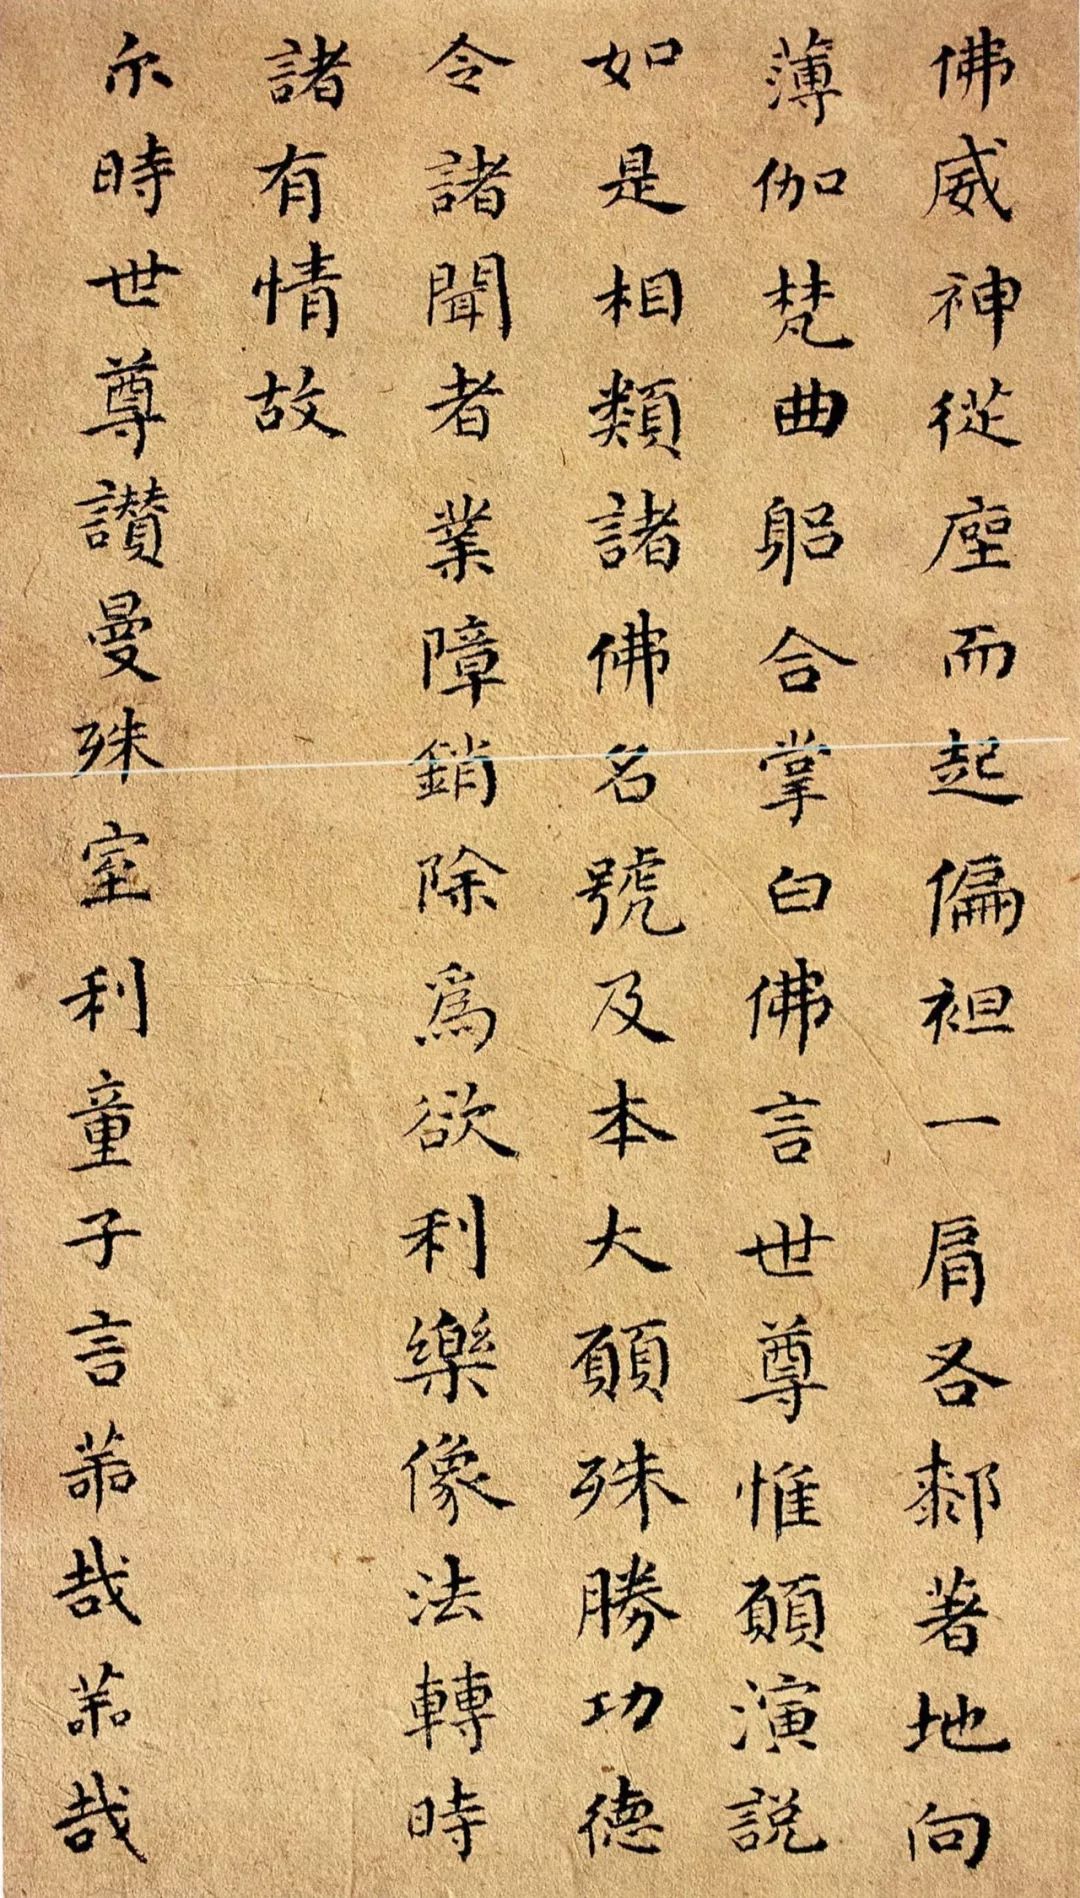 佛威神從座而起偏袒一肩各𨞬著地向
薄伽梵曲躬合掌白佛言世尊惟願演說
如是相類諸佛名號及本大願殊勝功德
令諸聞者業障銷除爲欲利樂像法轉時
諸有情故
尒時世尊讚曼殊室利童子言善哉善哉